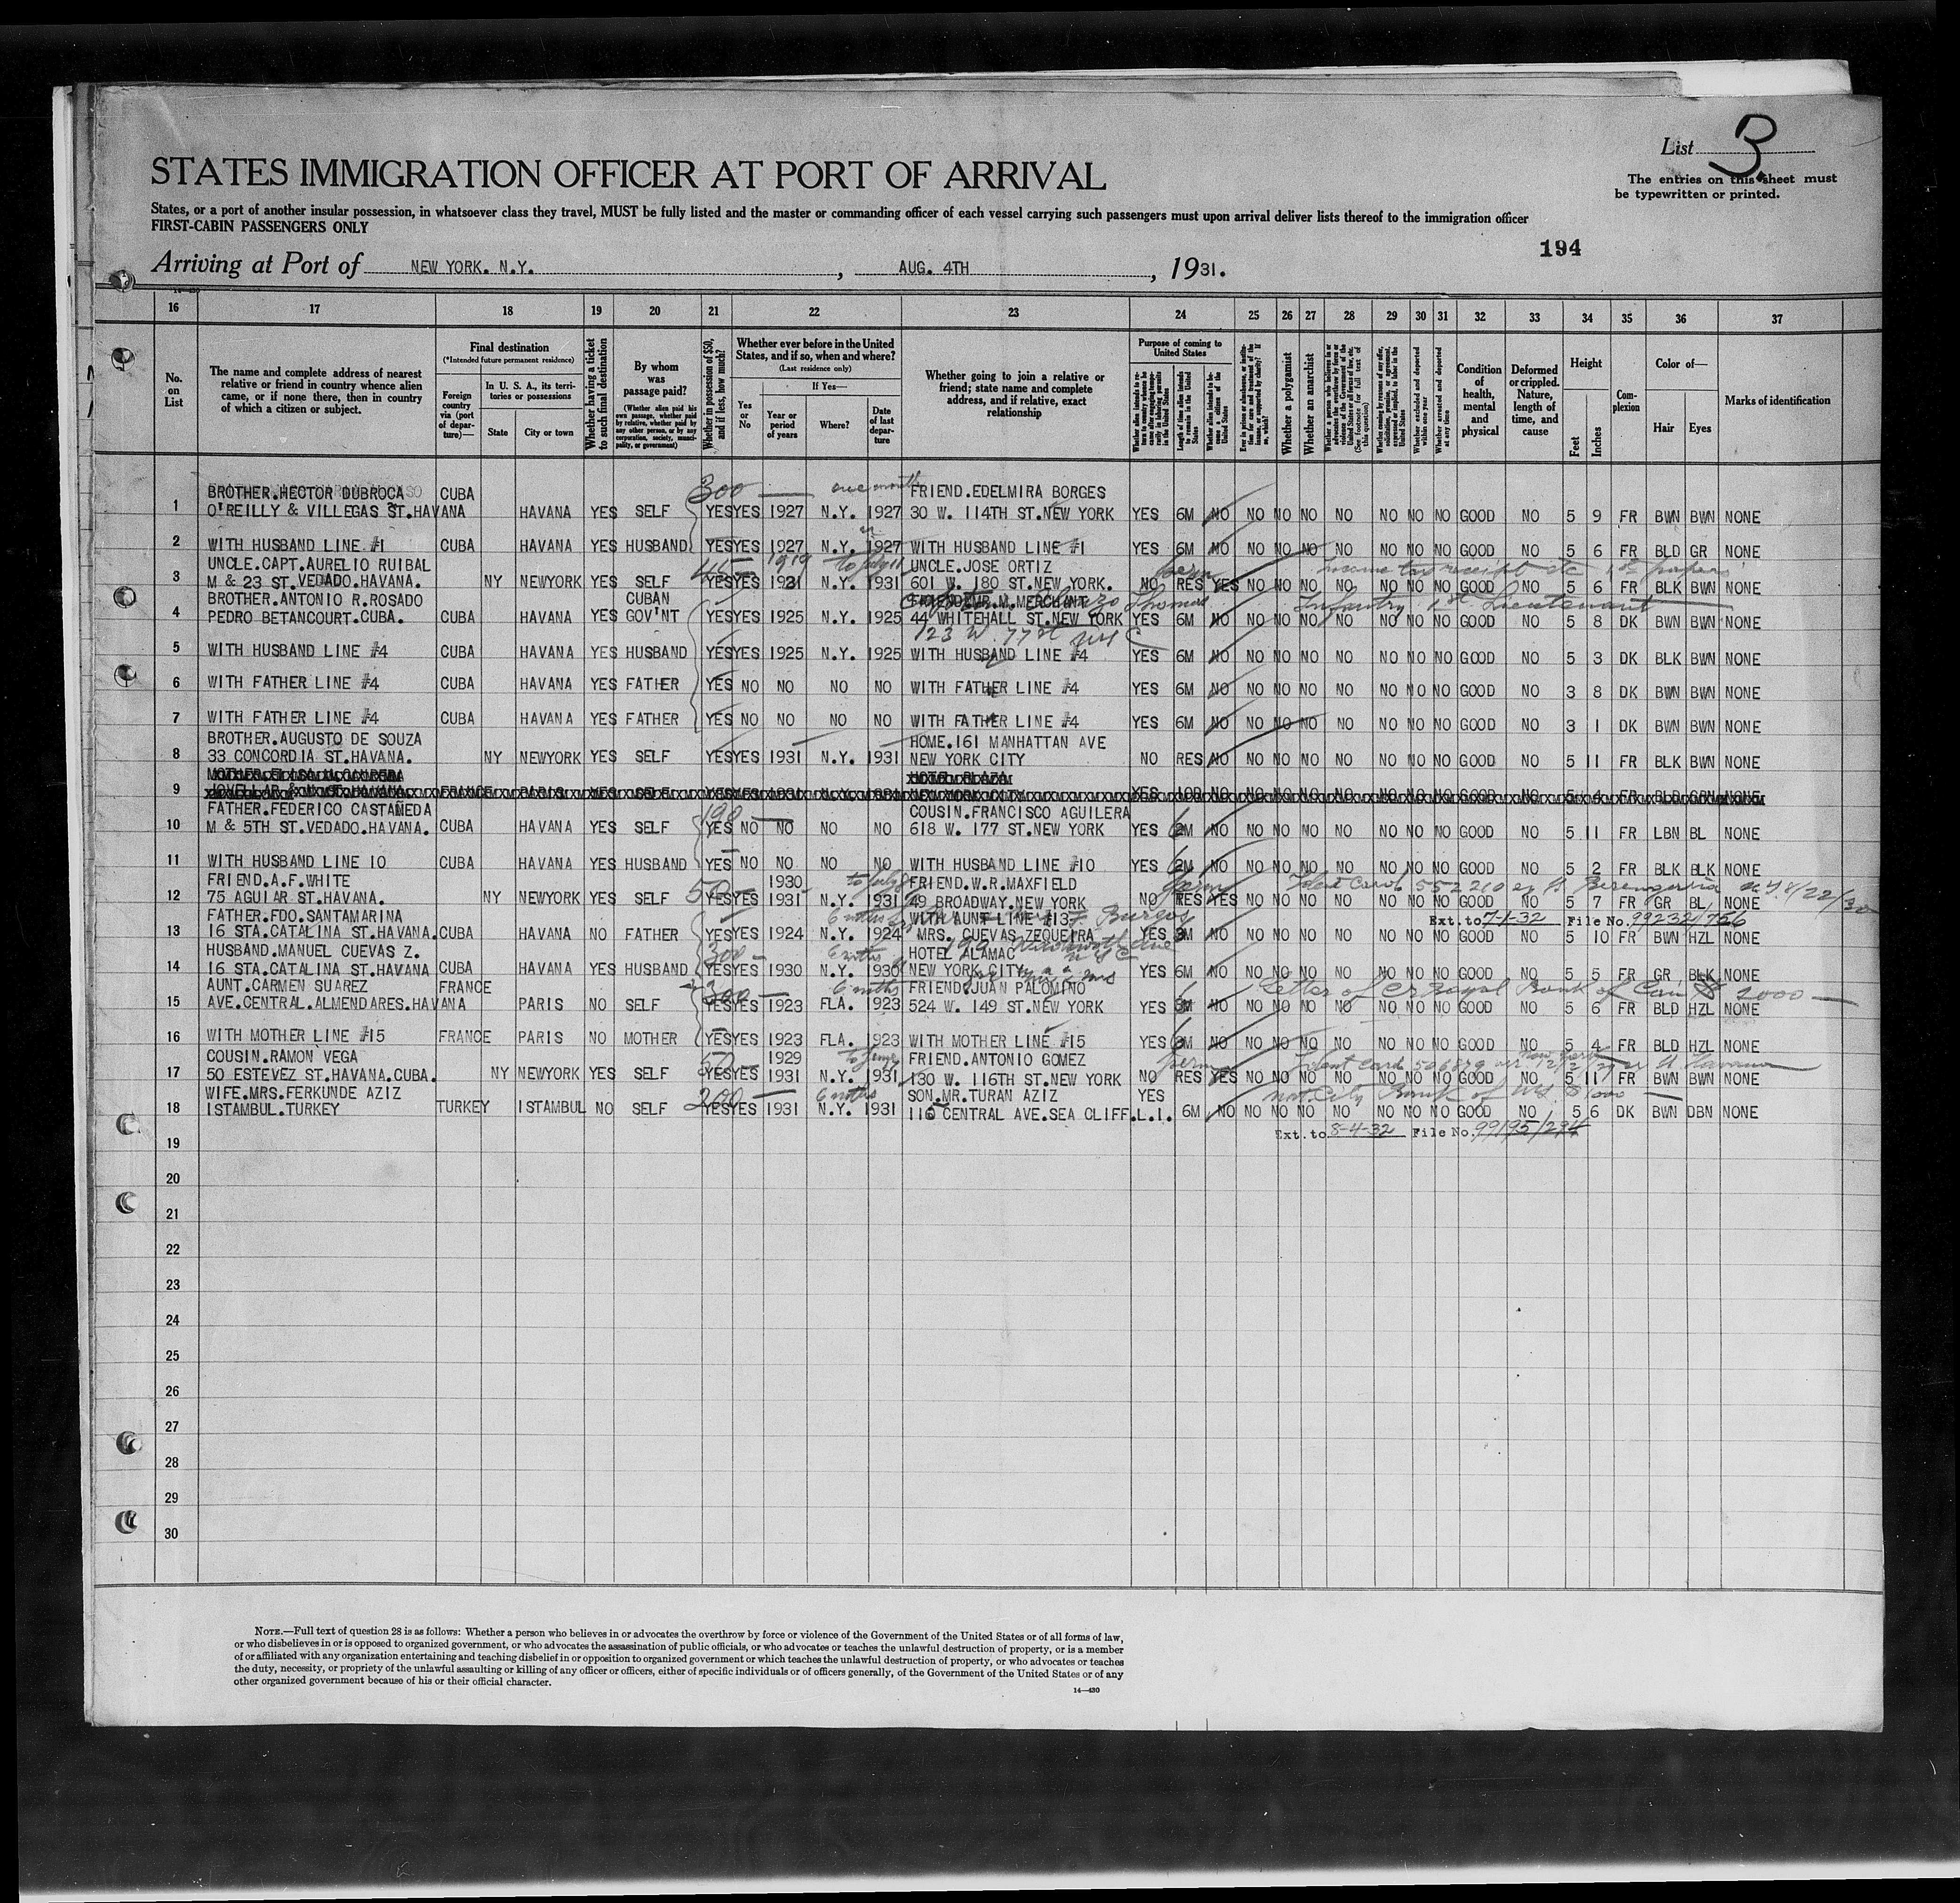 List 3.
The entries on this sheet must
be typewritten or printed.
STATES IMMIGRATION OFFICER AT PORT OF ARRIVAL
States, or a port of another insular possession, in whatsoever class they travel, MUST be fully listed and the master or commanding officer of each vessel carrying such passengers must upon arrival deliver lists thereof to the immigration officer
FIRST-CABIN PASSENGERS ONLY
194
Arriving at Port of NEW YORK. N.Y. , AUG. 4TH , 1931.
16 17 18 19 20 21 22 23 24 25 26 27 28 29 30 31 32 33 34 35 36 37
No. on List
The name and complete address of nearest relative or friend in country whence alien came, or if none there, then in country of which a citizen or subject.
Final destination
(*Intended future permanent residence)
Foreign country via (port of departure)—
In U. S. A., its territories or possessions
State
City or town
Whether having a ticket to such final destination
By whom was passage paid?
(Whether alien paid his own passage, whether paid by relative, whether paid by any other person, or by any corporation, society, municipality, or government)
Whether in possession of $50, and if less, how much?
Whether ever before in the United States, and if so, when and where?
(Last residence only)
Yes or No
If Yes—
Year or period of years
Where?
Date of last departure
Whether going to join a relative or friend; state name and complete address, and if relative, exact relationship
Purpose of coming to United States
Length of time alien intends to remain in the United States
Whether a polygamist
Whether an anarchist
Whether arrested and deported at any time
Condition of health, mental and physical
Deformed or crippled. Nature, length of time, and cause
Height
Feet
Inches
Complexion
Color of—
Hair
Eyes
Marks of identification
300 — one month
BROTHER.HECTOR DUBROCA CUBA FRIEND.EDELMIRA BORGES
1 O'REILLY & VILLEGAS ST.HAVANA HAVANA YES SELF YES YES 1927 N.Y. 1927 30 W. 114TH ST.NEW YORK YES 6M NO NO NO NO NO NO NO NO GOOD NO 5 9 FR BWN BWN NONE
2 WITH HUSBAND LINE #1 CUBA HAVANA YES HUSBAND YES YES 1927 N.Y. 1927 WITH HUSBAND LINE #1 YES 6M NO NO NO NO NO NO NO NO GOOD NO 5 6 FR BLD GR NONE
UNCLE.CAPT.AURELIO RUIBAL 45 — 1919 to July 11 UNCLE.JOSE ORTIZ perm income tax receipt etc 1st papers
3 M & 23 ST.VEDADO.HAVANA. NY NEWYORK YES SELF YES YES 1931 N.Y. 1931 601 W. 180 ST.NEW YORK. NO RES YES NO NO NO NO NO NO NO GOOD NO 5 6 FR BLK BWN NONE
BROTHER.ANTONIO R.ROSADO CUBAN MR.M.MERCHANT Thomas Infantry 1st Lieutenant
4 PEDRO BETANCOURT.CUBA. CUBA HAVANA YES GOV'NT YES YES 1925 N.Y. 1925 44 WHITEHALL ST.NEW YORK YES 6M NO NO NO NO NO NO NO NO GOOD NO 5 8 DK BWN BWN NONE
123 W. 77 st NYC
5 WITH HUSBAND LINE #4 CUBA HAVANA YES HUSBAND YES YES 1925 N.Y. 1925 WITH HUSBAND LINE #4 YES 6M NO NO NO NO NO NO NO NO GOOD NO 5 3 DK BLK BWN NONE
6 WITH FATHER LINE #4 CUBA HAVANA YES FATHER YES NO NO NO NO WITH FATHER LINE #4 YES 6M NO NO NO NO NO NO NO NO GOOD NO 3 8 DK BWN BWN NONE
7 WITH FATHER LINE #4 CUBA HAVANA YES FATHER YES NO NO NO NO WITH FATHER LINE #4 YES 6M NO NO NO NO NO NO NO NO GOOD NO 3 1 DK BWN BWN NONE
BROTHER.AUGUSTO DE SOUZA HOME.161 MANHATTAN AVE
8 33 CONCORDIA ST.HAVANA. NY NEWYORK YES SELF YES YES 1931 N.Y. 1931 NEW YORK CITY NO RES NO NO NO NO NO NO NO NO GOOD NO 5 11 FR BLK BWN NONE
HOTEL PLAZA
9 FRANCE PARIS YES SELF YES YES 1931 N.Y. 1931 NEW YORK CITY YES 10D NO NO NO NO NO NO NO NO GOOD NO 5 4 FR BLD GRN NONE
FATHER.FEDERICO CASTAÑEDA 190 — COUSIN.FRANCISCO AGUILERA
10 M & 5TH ST.VEDADO.HAVANA. CUBA HAVANA YES SELF YES NO NO NO NO 618 W. 177 ST.NEW YORK YES 2M NO NO NO NO NO NO NO NO GOOD NO 5 11 FR LBN BL NONE
11 WITH HUSBAND LINE 10 CUBA HAVANA YES HUSBAND YES NO NO NO NO WITH HUSBAND LINE #10 YES 2M NO NO NO NO NO NO NO NO GOOD NO 5 2 FR BLK BLK NONE
FRIEND.A.F.WHITE 1930 to July FRIEND.W.R.MAXFIELD perm Ident Card 552210 Berengaria NY 8/22/30
12 75 AGUIAR ST.HAVANA. NY NEWYORK YES SELF 50 YES YES 1931 N.Y. 1931 49 BROADWAY.NEW YORK NO RES YES NO NO NO NO NO NO NO GOOD NO 5 7 FR GR BL NONE
FATHER.FDO.SANTAMARINA 6 mths WITH AUNT LINE #13 F. Burgos Ext. to 7-1-32 File No. 99232/756
13 16 STA.CATALINA ST.HAVANA. CUBA HAVANA NO FATHER YES YES 1924 N.Y. 1924 MRS. CUEVAS ZEQUEIRA YES 3M NO NO NO NO NO NO NO NO GOOD NO 5 10 FR BWN HZL NONE
HUSBAND.MANUEL CUEVAS Z. 300 — 6 mths HOTEL ALAMAC NYC
14 16 STA.CATALINA ST.HAVANA CUBA HAVANA YES HUSBAND YES YES 1930 N.Y. 1930 NEW YORK CITY YES 6M NO NO NO NO NO NO NO NO GOOD NO 5 5 FR GR BLK NONE
AUNT.CARMEN SUAREZ FRANCE 300 — 6 mths FRIEND.JUAN PALOMINO Letter of Cr Royal Bank of Can $ 2000 —
15 AVE.CENTRAL.ALMENDARES.HAVANA PARIS NO SELF YES YES 1923 FLA. 1923 524 W. 149 ST.NEW YORK YES 3M NO NO NO NO NO NO NO NO GOOD NO 5 6 FR BLD HZL NONE
16 WITH MOTHER LINE #15 FRANCE PARIS NO MOTHER YES YES 1923 FLA. 1923 WITH MOTHER LINE #15 YES NO NO NO NO NO NO NO NO GOOD NO 5 4 FR BLD HZL NONE
COUSIN.RAMON VEGA 50 — 1929 to June FRIEND.ANTONIO GOMEZ perm Ident Card Havana
17 50 ESTEVEZ ST.HAVANA.CUBA. NY NEWYORK YES SELF YES YES 1931 N.Y. 1931 130 W. 116TH ST.NEW YORK NO RES YES NO NO NO NO NO NO NO GOOD NO 5 11 FR BWN BWN NONE
WIFE.MRS.FERKUNDE AZIZ 200 — 6 mths SON.MR.TURAN AZIZ YES Nat City Bank of NY $1000 —
18 ISTAMBUL.TURKEY TURKEY ISTAMBUL NO SELF YES YES 1931 N.Y. 1931 116 CENTRAL AVE.SEA CLIFF.L.I. 6M NO NO NO NO NO NO NO NO GOOD NO 5 6 DK BWN DBN NONE
19 Ext. to 8-4-32 File No. 99195/294
20
21
22
23
24
25
26
27
28
29
30
NOTE.—Full text of question 28 is as follows: Whether a person who believes in or advocates the overthrow by force or violence of the Government of the United States or of all forms of law,
or who disbelieves in or is opposed to organized government, or who advocates the assassination of public officials, or who advocates or teaches the unlawful destruction of property, or is a member
of or affiliated with any organization entertaining and teaching disbelief in or opposition to organized government or which teaches the unlawful destruction of property, or who advocates or teaches
the duty, necessity, or propriety of the unlawful assaulting or killing of any officer or officers, either of specific individuals or of officers generally, of the Government of the United States or of any
other organized government because of his or their official character.
14—430